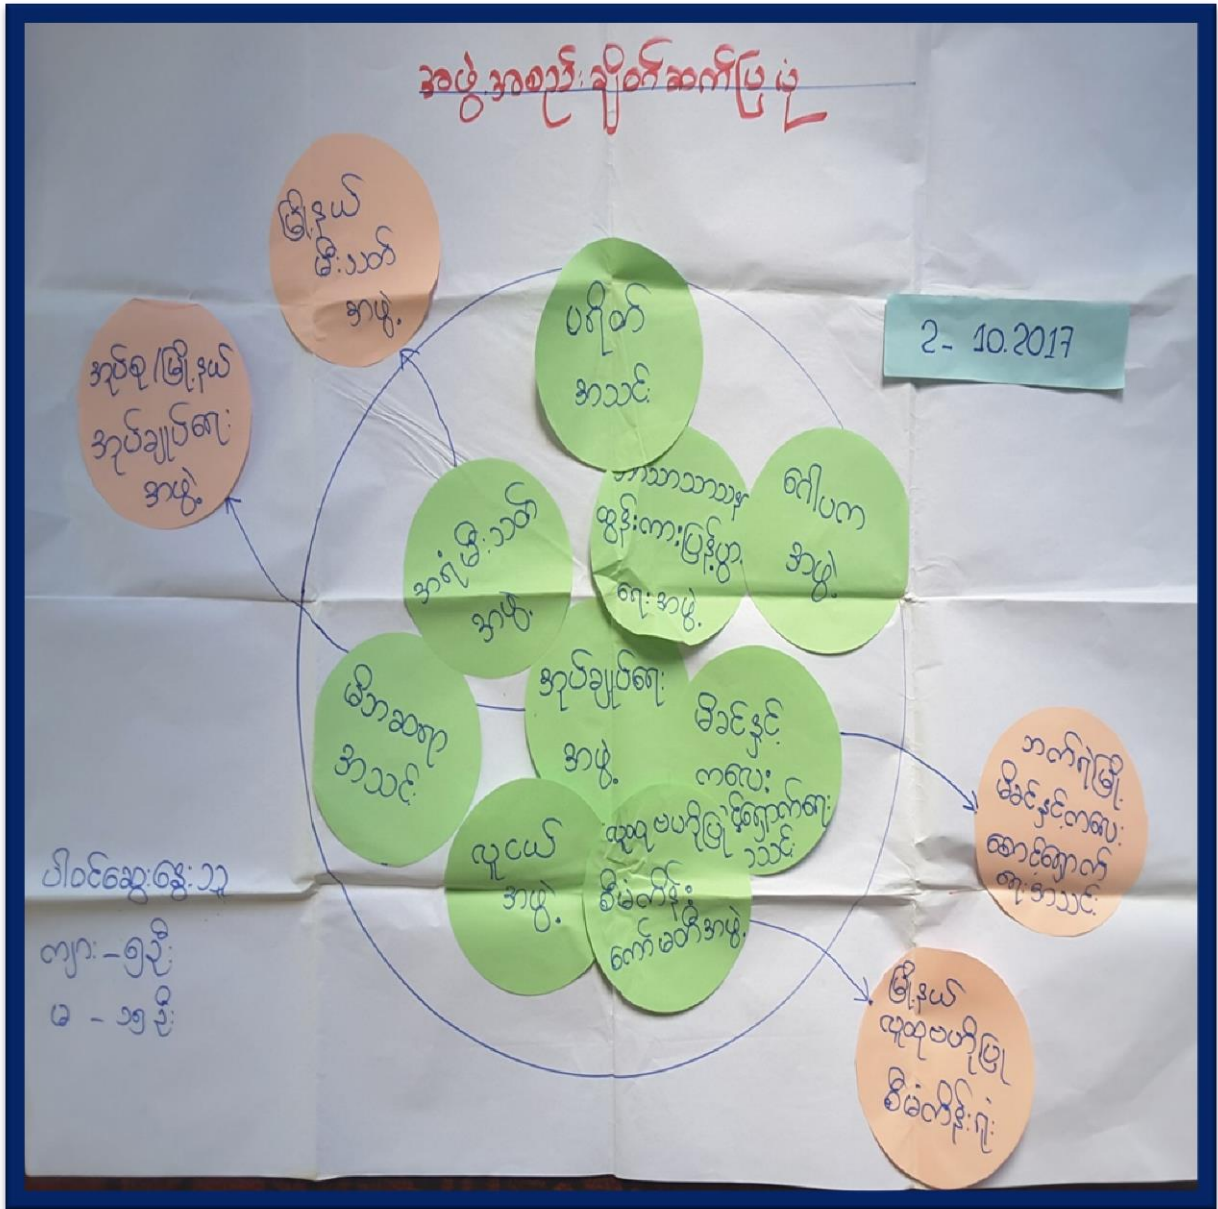 အဖွဲ့အစည်းချိတ်ဆက်ပြပုံ
မြို့နယ်
မီးသတ်
အဖွဲ့
အုပ်စု/မြို့နယ်
အုပ်ချုပ်ရေး
အဖွဲ့
ပရိတ်
အသင်း
2- 10.2017
ဘာသာသာသနာ
ထွန်းကားပြန့်ပွား
ရေးအဖွဲ့
ဂေါပက
အဖွဲ့
အရံမီးသတ်
အဖွဲ့
အုပ်ချုပ်ရေး
အဖွဲ့
မိဘဆရာ
အသင်း
မိခင်နှင့်
ကလေး
စောင့်ရှောက်ရေး
အသင်း
လူငယ်
အဖွဲ့
လူထုဗဟိုပြု
စီမံကိန်း
ကော်မတီအဖွဲ့
ဘက်ရဲမြို့
မိခင်နှင့်ကလေး
စောင့်ရှောက်
ရေးအသင်း
မြို့နယ်
လူထုဗဟိုပြု
စီမံကိန်းရုံး
ပါဝင်ဆွေးနွေးသူ
ကျား - ၅ဦး
မ - ၁၅ဦး